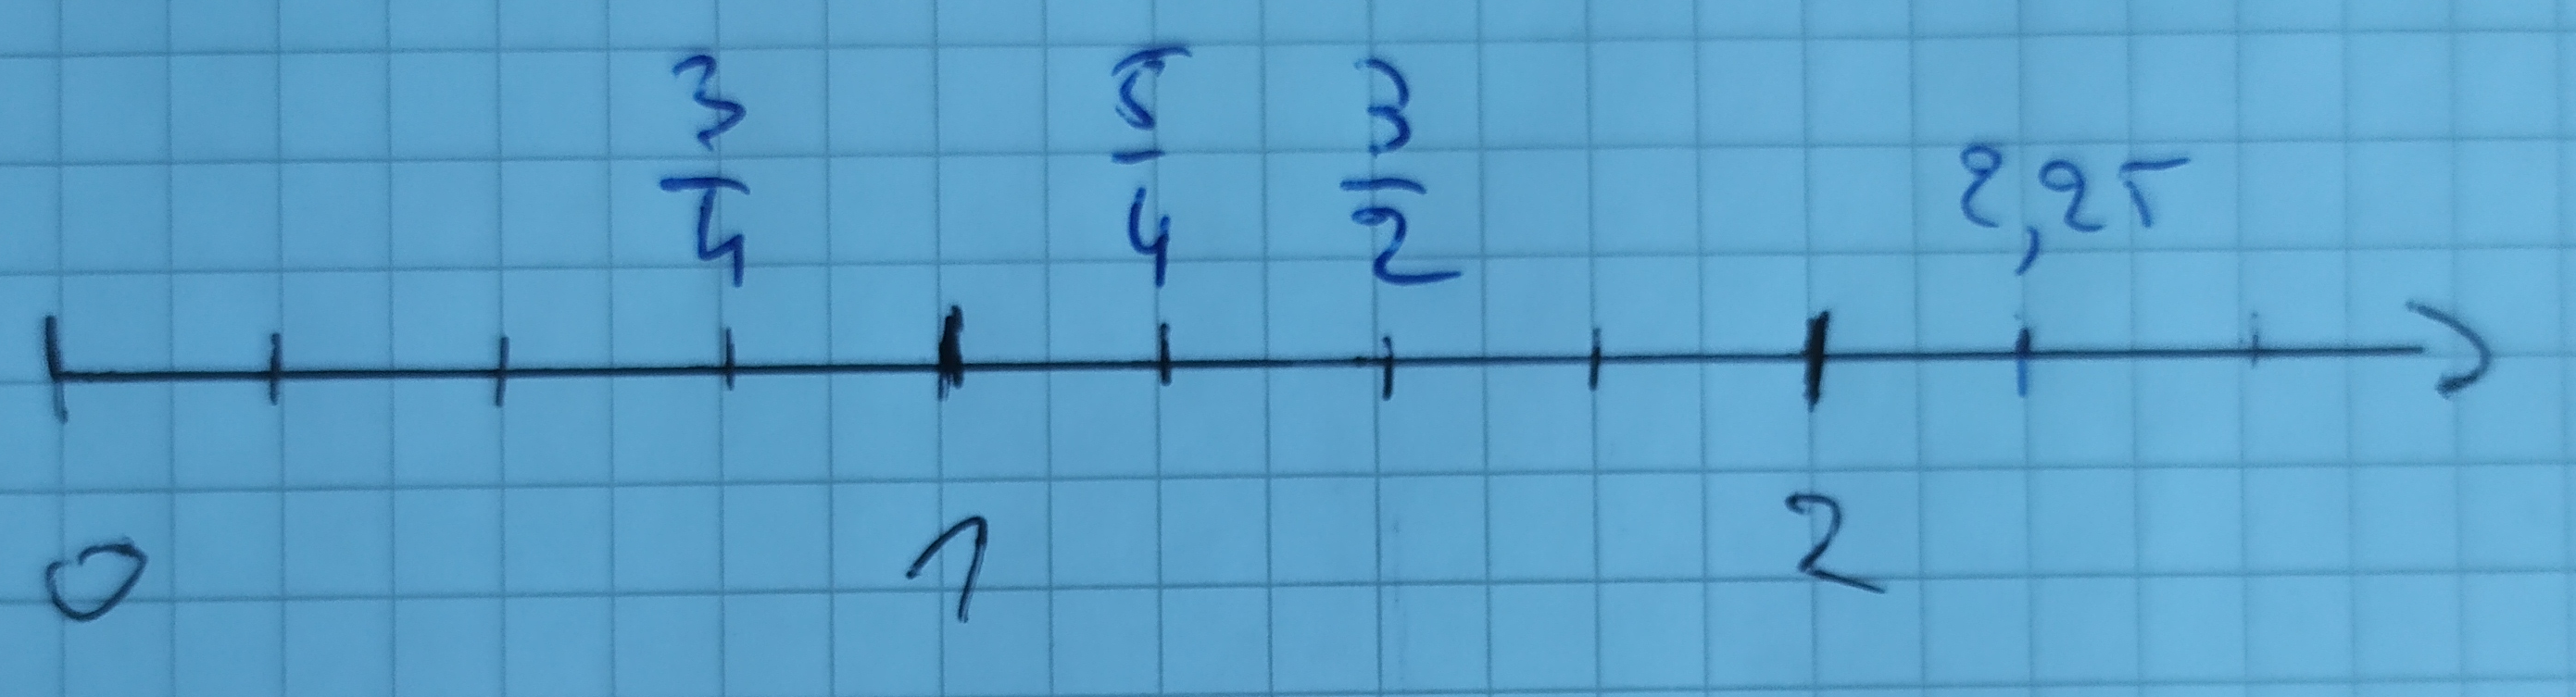 3/4 5/4 3/2 2,25
0 1 2